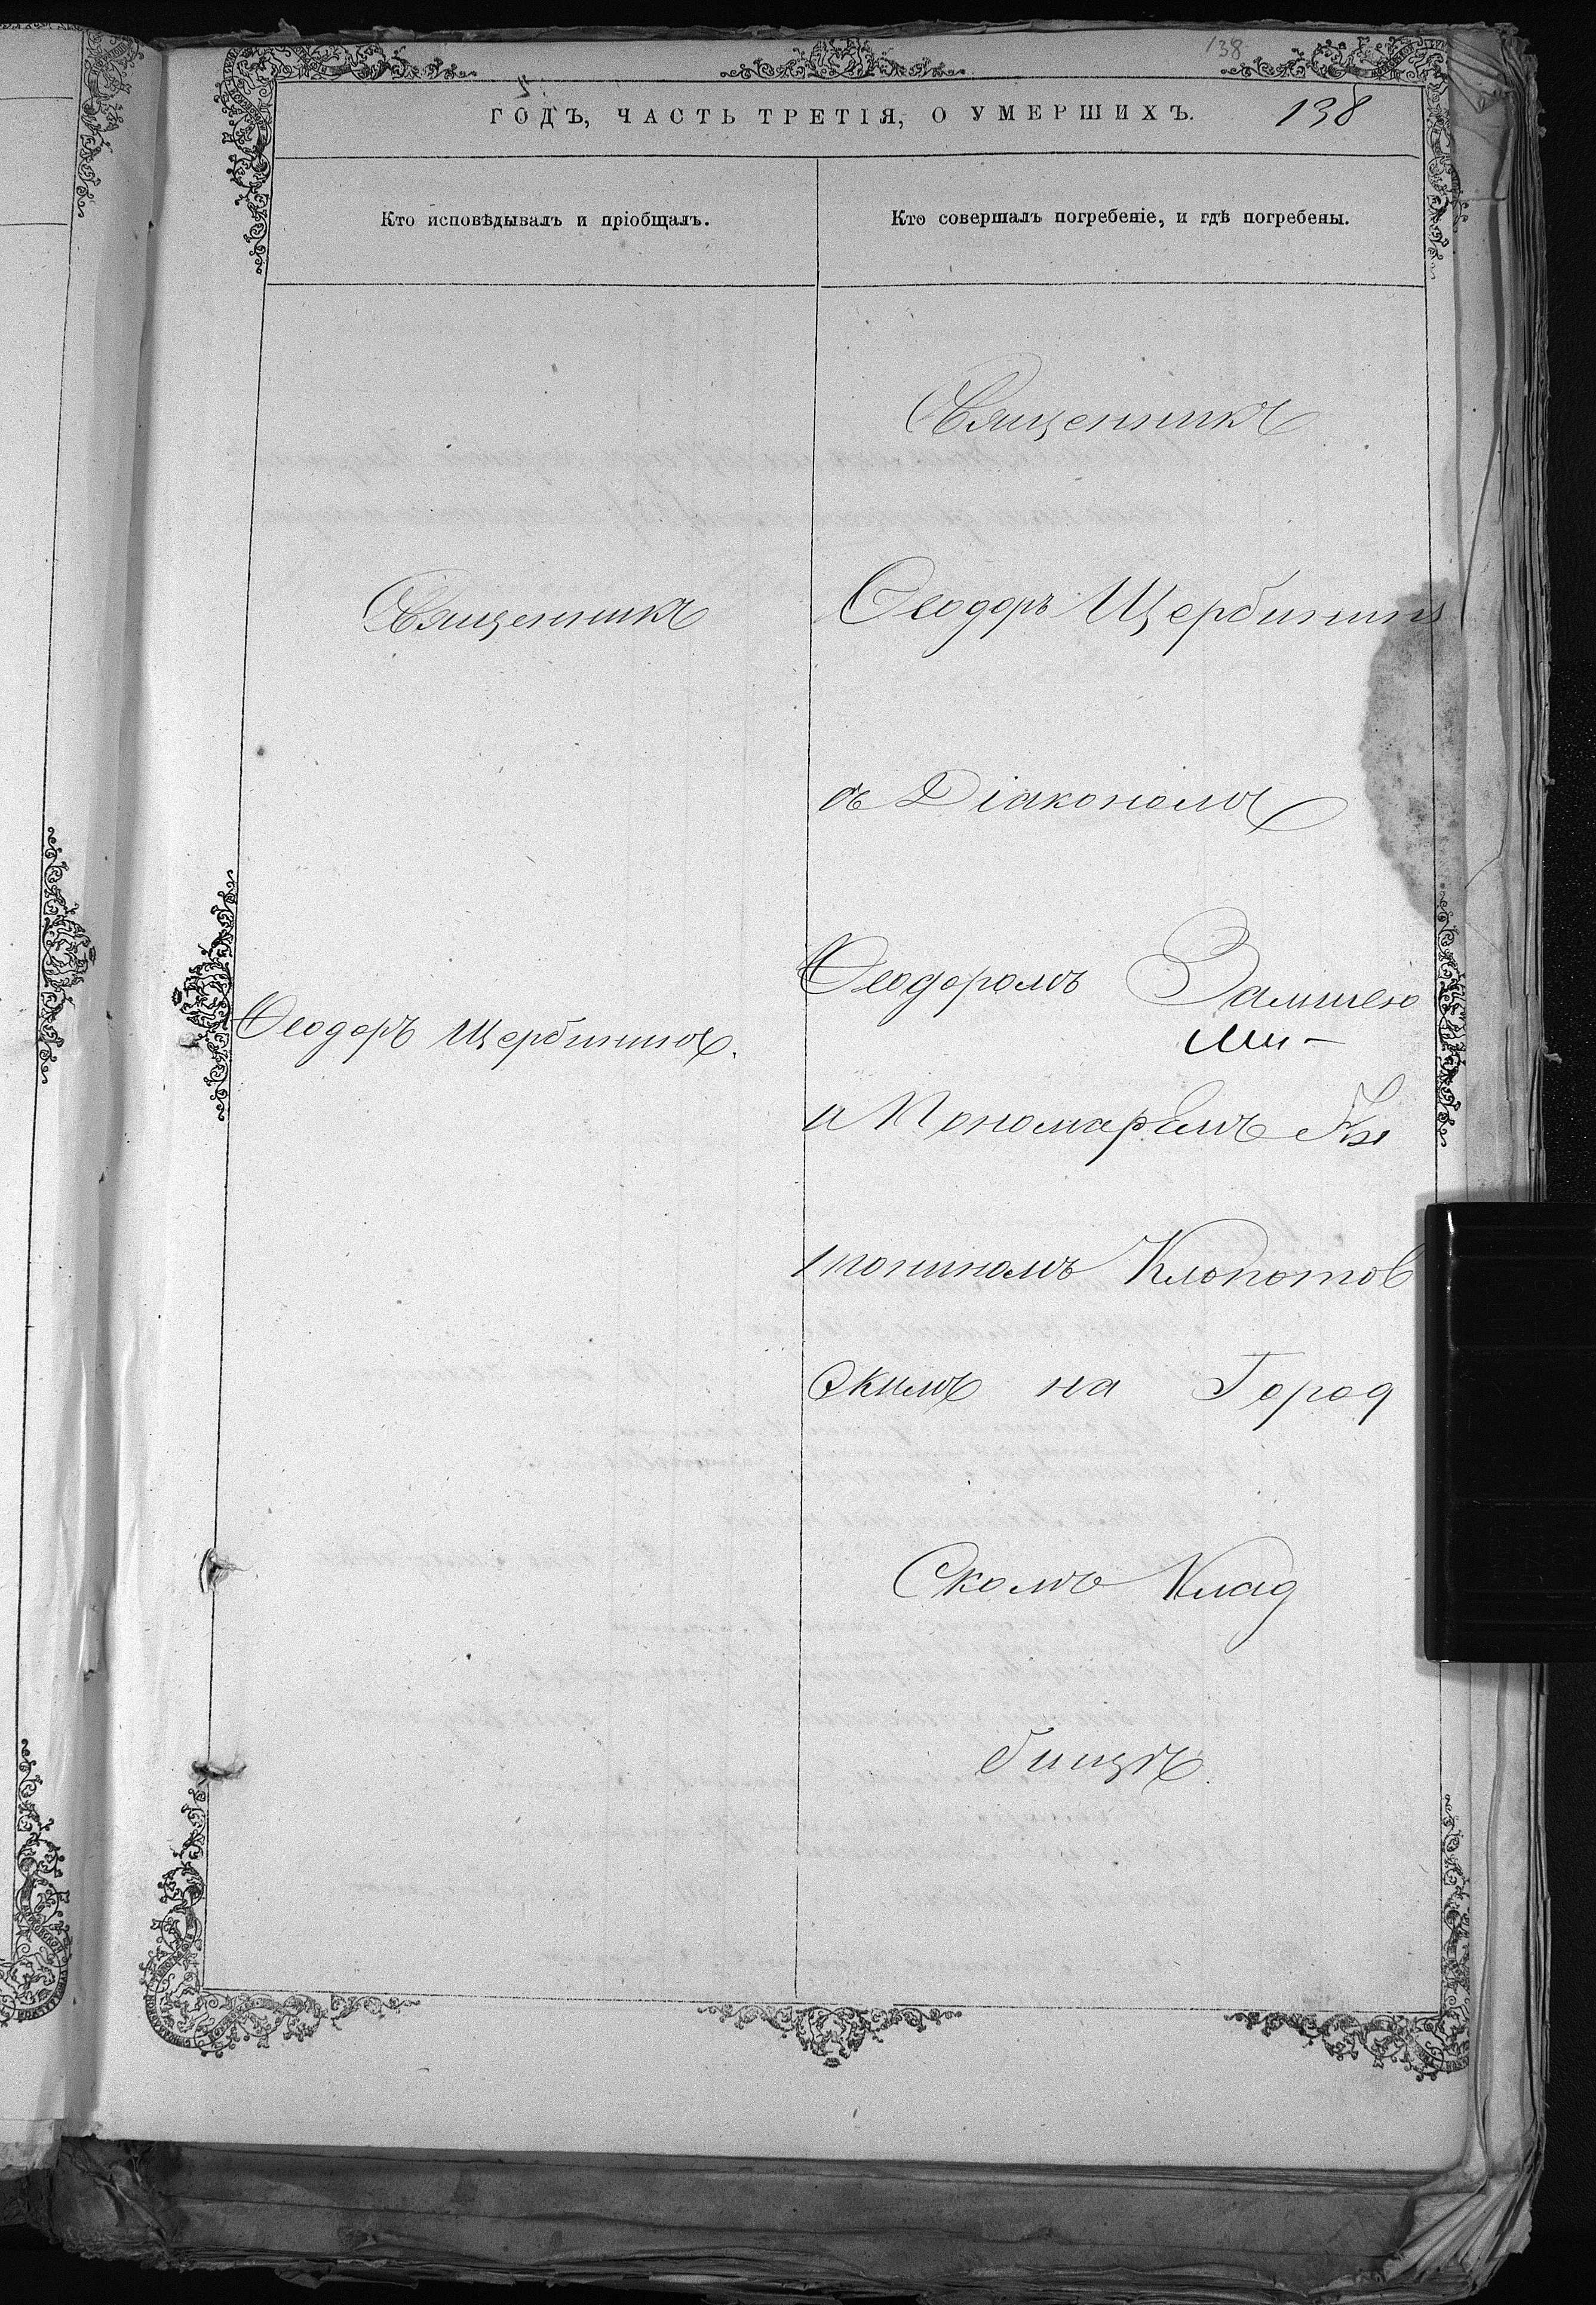 138
5.
ГОДЪ, ЧАСТЬ ТРЕТІЯ, О УМЕРШИХЪ. 138
Кто исповѣдывалъ и пріобщалъ.
Священникъ
Ѳеодоръ Щербининъ.
Кто совершалъ погребеніе, и гдѣ погребены.
Священникъ
Ѳеодоръ Щербининъ
съ Діакономъ
Ѳеодоромъ
и Пономаремъ
Клопотов
скимъ на Город
скомъ Клад
бищѣ.